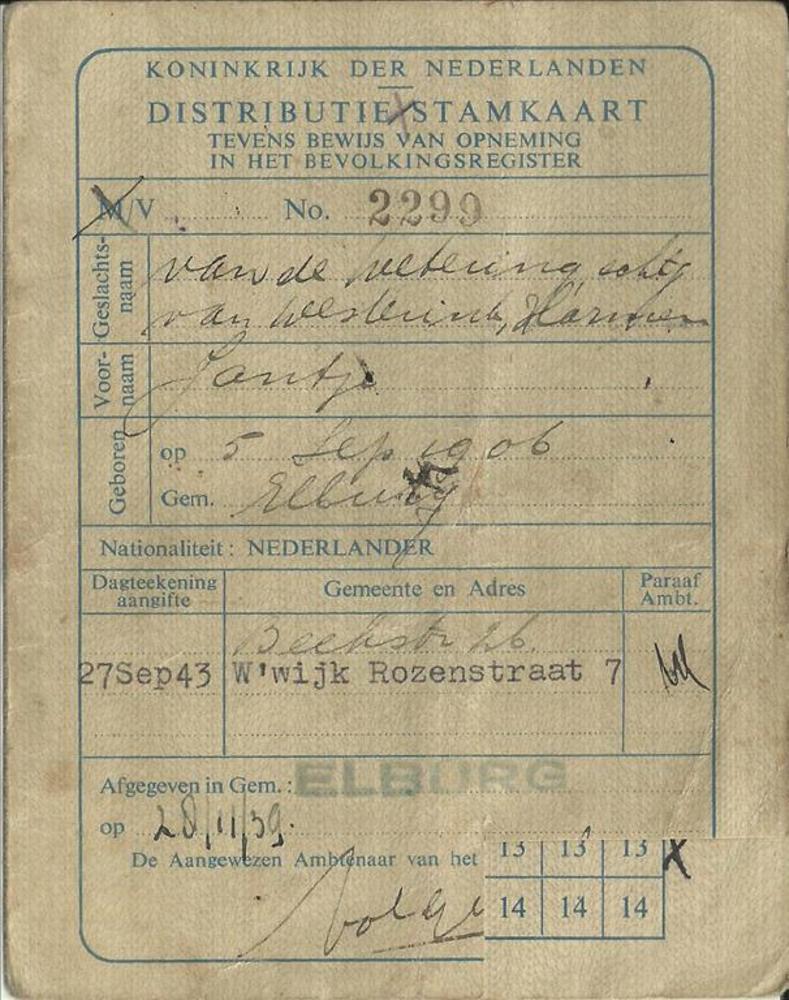 KONINKRIJK DER NEDERLANDEN
DISTRIBUTIE STAMKAART
TEVENS BEWIJS VAN OPNEMING
IN HET BEVOLKINGSREGISTER
M/V No. 2299
Geslachts-
naam
van de Wetering echtg
van Westerink, Harmen
Voor-
naam
Jantje
Geboren
op 5 Sep 1906
Gem. Elburg
Nationaliteit : NEDERLANDER
Dagteekening
aangifte
Gemeente en Adres
Paraaf
Ambt.
Beekstr 26.
27Sep43 W'wijk Rozenstraat 7
Afgegeven in Gem. : ELBURG
op 28/11/39.
De Aangewezen Ambtenaar van het
13 13 13
14 14 14